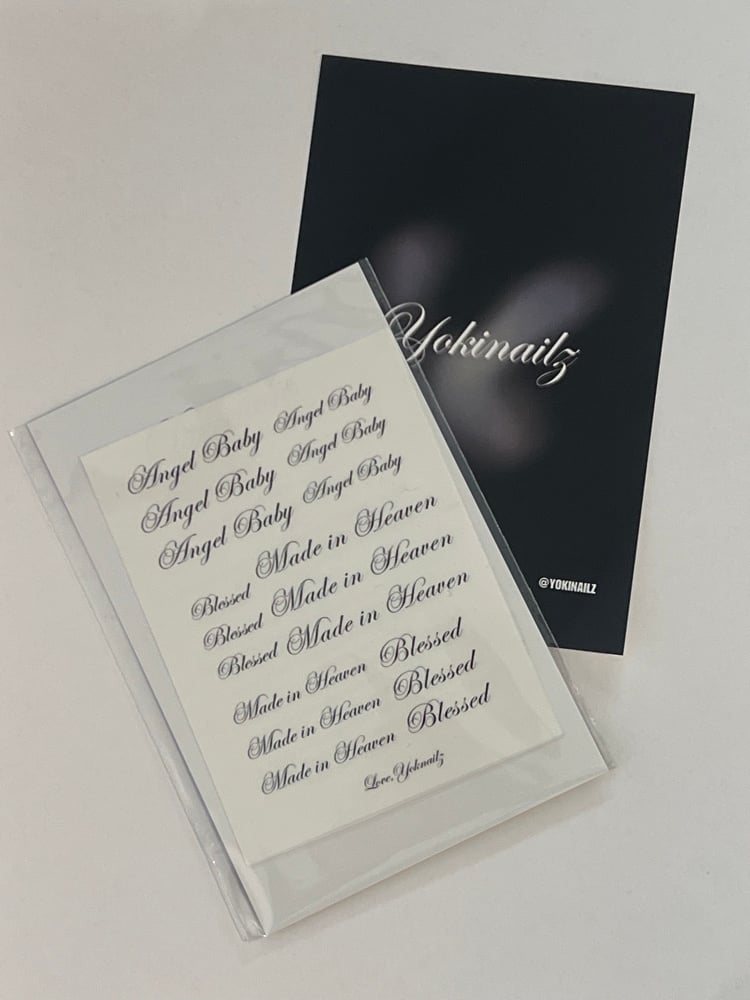 Yokinailz
@YOKINAILZ
Angel Baby Angel Baby
Angel Baby Angel Baby
Angel Baby Angel Baby
Blessed Made in Heaven
Blessed Made in Heaven
Blessed Made in Heaven
Made in Heaven Blessed
Made in Heaven Blessed
Made in Heaven Blessed
Love, Yoknailz